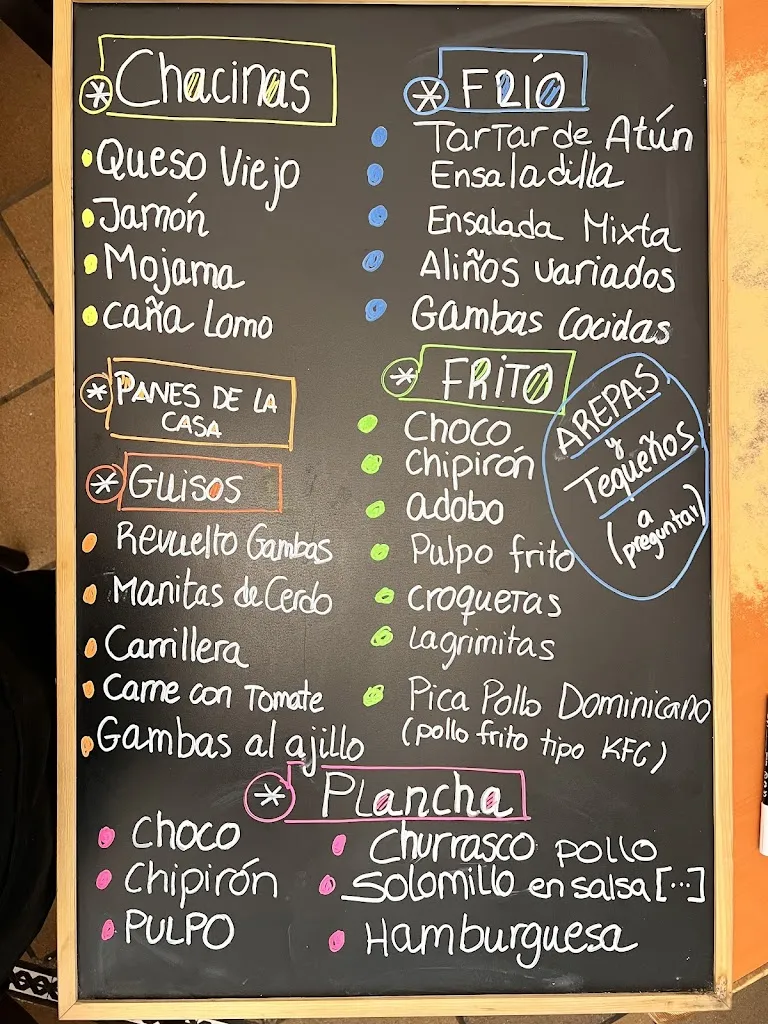 * Chacinas
Queso Viejo
Jamón
Mojama
caña Lomo
* PANES DE LA
CASA
* Guisos
Revuelto Gambas
Manitas de Cerdo
Carrillera
Carne con Tomate
Gambas al ajillo
* FRÍO
TarTar de Atún
Ensaladilla
Ensalada Mixta
Aliños variados
Gambas cocidas
* FRITO
Choco
Chipirón
adobo
Pulpo frito
croquetas
lagrimitas
Pica Pollo Dominicano
(pollo frito tipo KFC)
AREPAS
y
Tequeños
(a
preguntar)
* Plancha
choco
Chipirón
PULPO
Churrasco pollo
Solomillo en salsa [...]
Hamburguesa